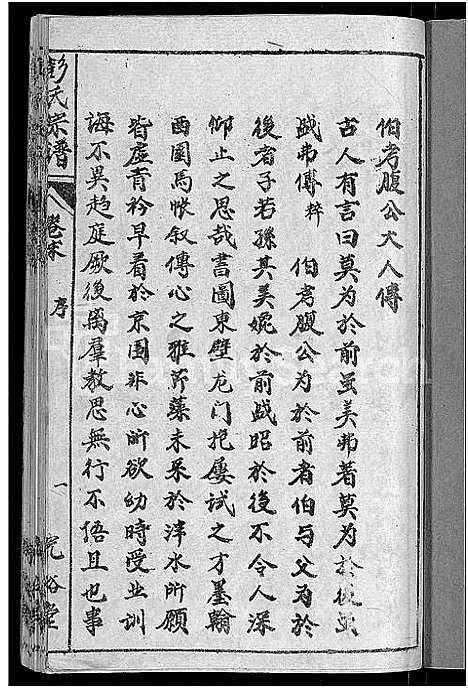 伯考腹公大人傳
古人有言曰莫為於前虽美弗著莫為於後虽
盛弗傅粹 伯考腹公為於前者伯与父為於
後者子若孫其美媲於前盛昭於後不令人深
仰止之思哉書圖東壁龙门抱屡試之才墨翰
西園馬帐叙傳心之雅芹藻未采於泮水所願
皆虛青衿早着於京围非心所欲幼時受业訓
誨不異趋庭厥後离羣教思無行不悟且也事
彭氏宗譜
卷末
序
一